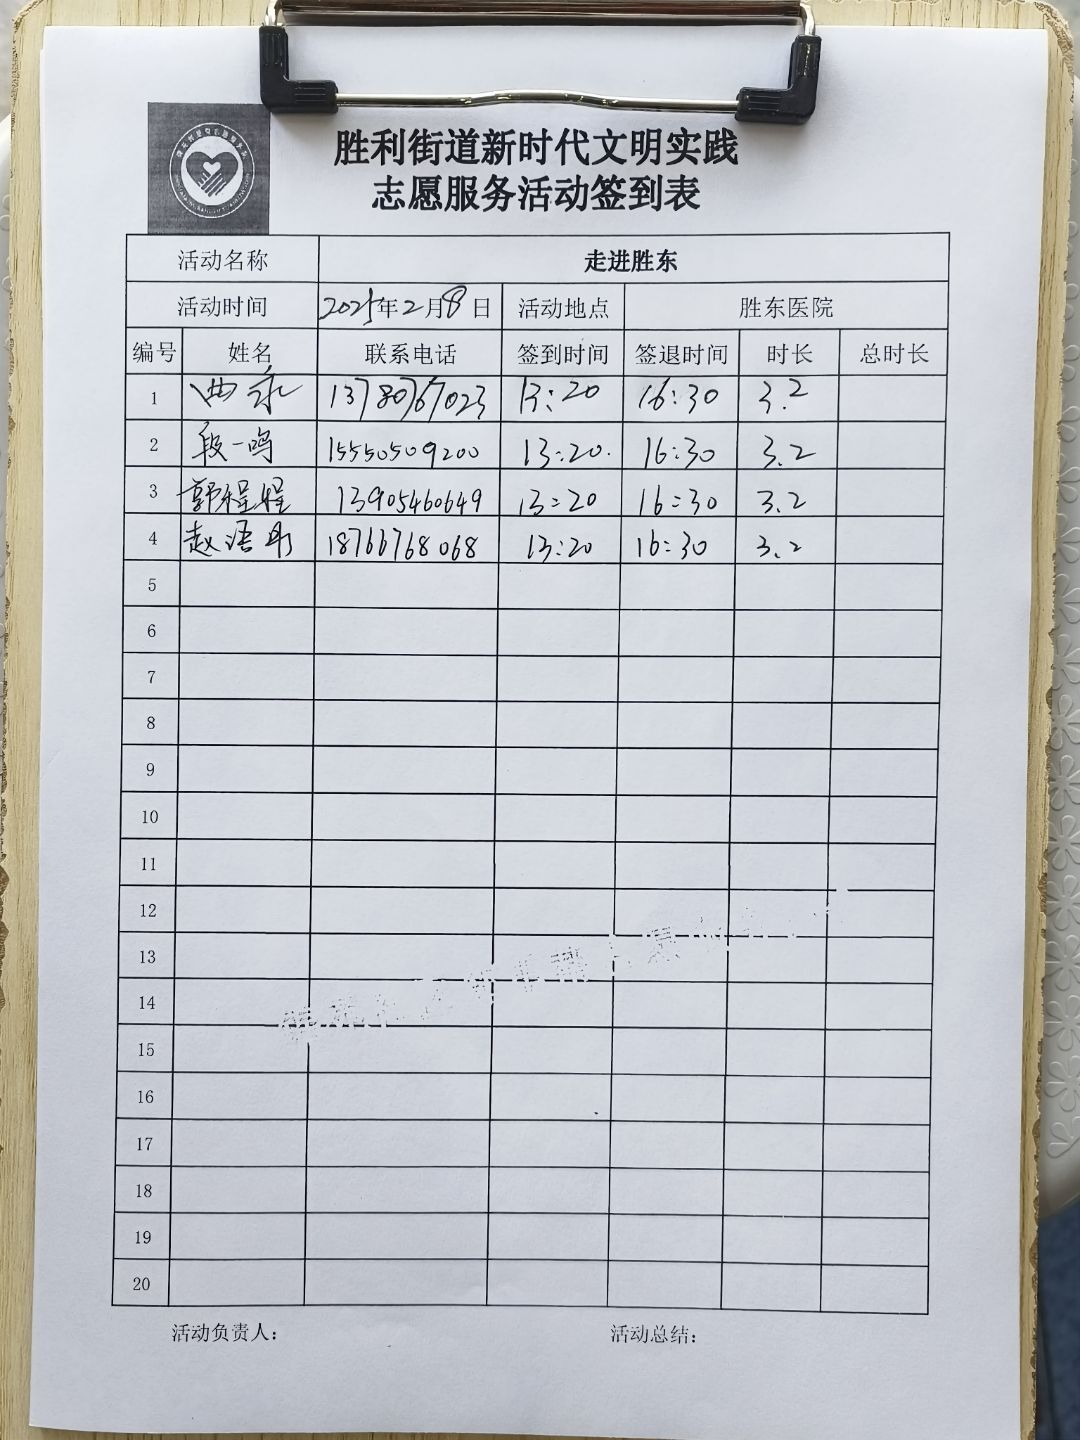 胜利街道新时代文明实践
志愿服务活动签到表
活动名称 走进胜东
活动时间 2025年2月8日 活动地点 胜东医院
编号 姓名 联系电话 签到时间 签退时间 时长 总时长
1 13780767023 13:20 16:30 3.2
2 段一鸣 15550509200 13:20. 16:30 3.2
3 郭程程 13905460649 13:20 16:30 3.2
4 赵语彤 18766768068 13:20 16:30 3.2
5
6
7
8
9
10
11
12
13
14
15
16
17
18
19
20
活动负责人: 活动总结: